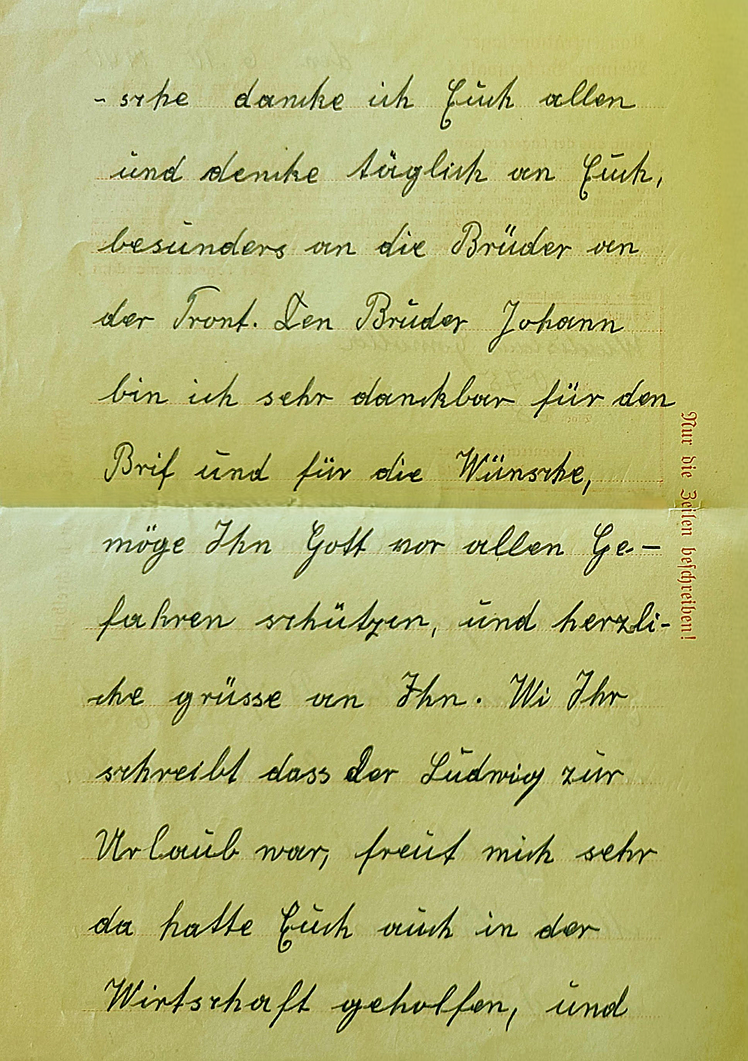 -sche dancke ich Euch allen
und dencke täglich an Euch,
besunders an die Brüder an
der Front. Den Brüder Johann
bin ich sehr danckbar für den
Brif und für die Wünsche,
möge Ihn Gott vor allen Ge-
fahren schützen, und herzli-
che grüsse an Ihn. Wi Ihr
schreibt dass der Ludwig zur
Urlaub war, freut mich sehr
da hatte Euch auch in der
Wirtschaft geholfen, und
Nur die Zeilen beschreiben!